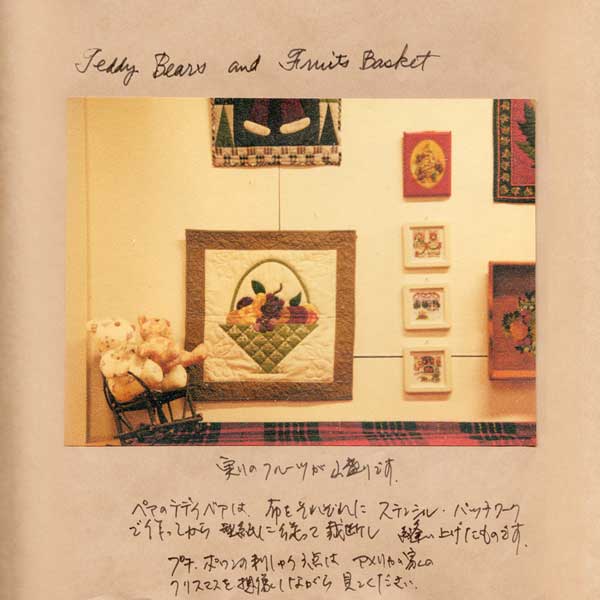 Teddy Bears and Fruits Basket
実りのフルーツが山盛りです.
ペアのテディベアは、布をそれぞれに ステンシル・パッチワーク
で作ってから 型紙に従って裁断し 縫い上げたものです.
プチ・ポワンの刺しゅう3点は アメリカの家の
クリスマスを想像しながら 見てください.